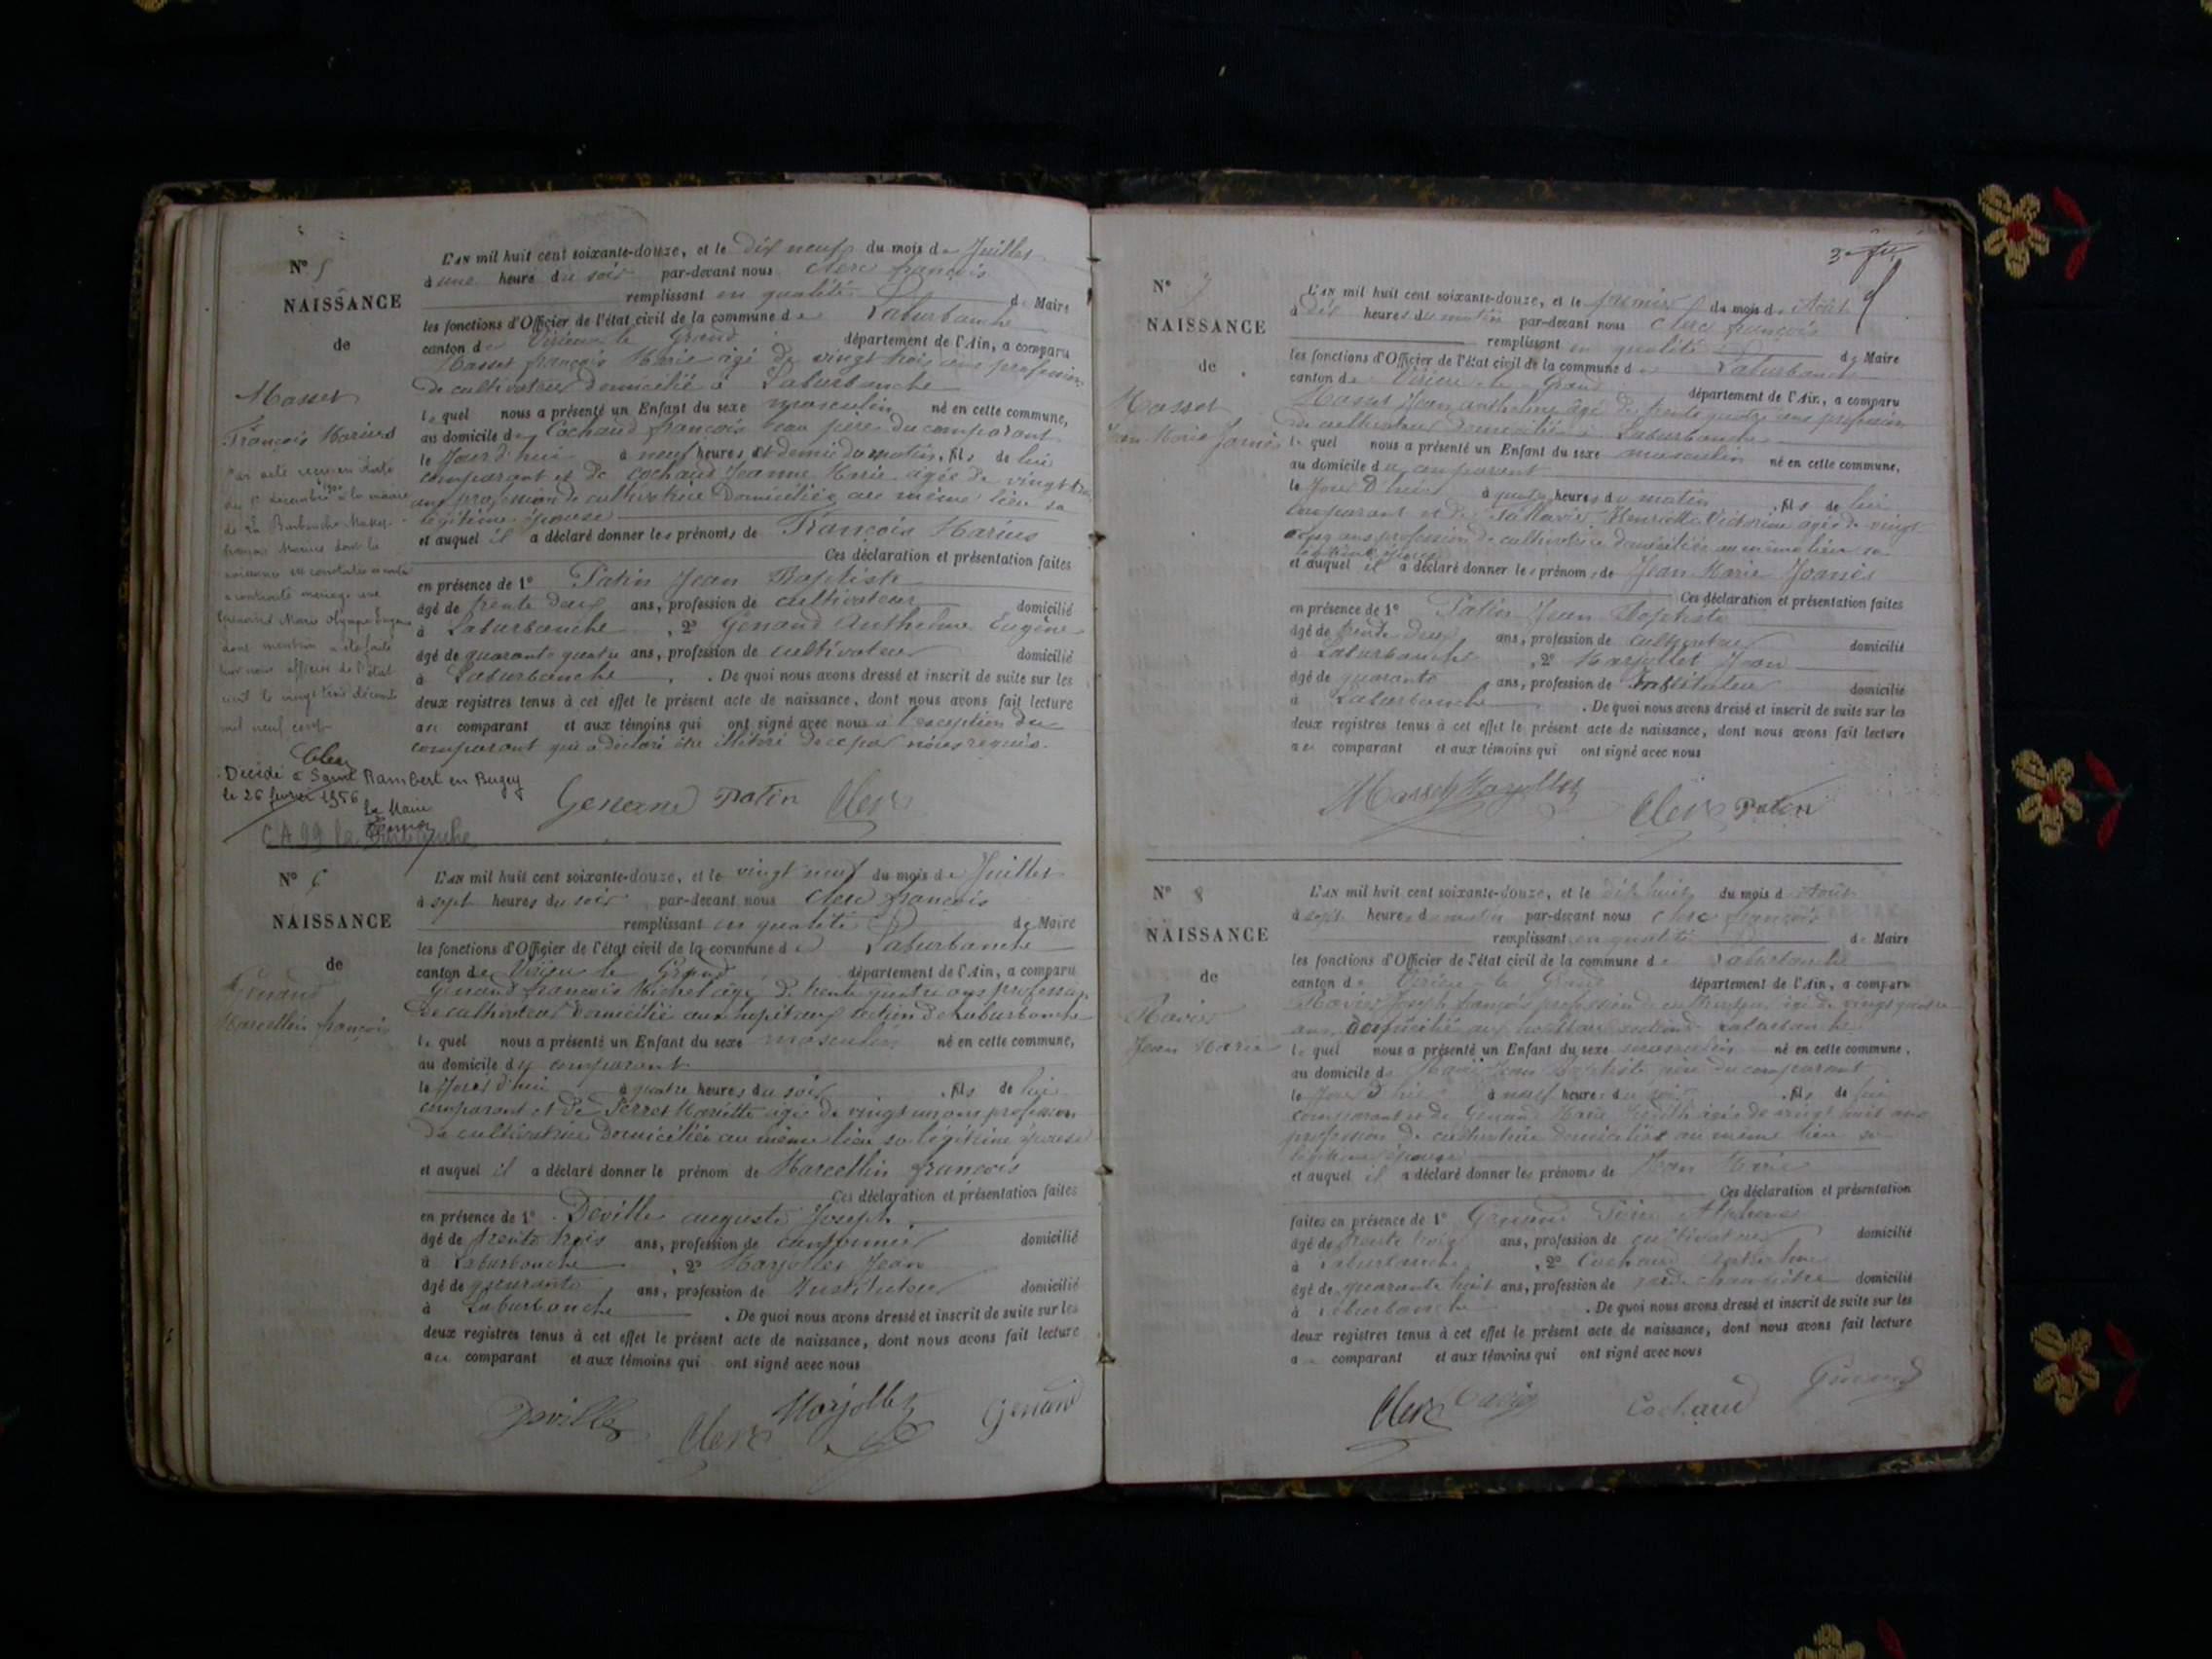 N° 5
NAISSANCE
de
Masset
François Marius
Par acte reçu en date
du 1er décembre 1900 à la mairie
de La Burbanche Masset
françois Marius dont la
naissance est constatée ci-contre
a contracté mariage avec
Marie Olympe
dont mention a été faite
par nous officier de l'état
civil le vingt trois décembre
mil neuf cent
Clerc
Décédé à Saint Rambert en Bugey
le 26 février 1956
Le Maire
L'AN mil huit cent soixante-douze, et le dix neuf du mois de Juillet
à une heure du soir par-devant nous Clerc françois
remplissant en qualité de Maire
les fonctions d'Officier de l'état civil de la commune de Laburbanche
canton de Virieu le Grand département de l'Ain, a comparu
Masset françois Marie âgé de vingt trois ans profession
de cultivateur domicilié à Laburbanche
lequel nous a présenté un Enfant du sexe masculin né en cette commune,
au domicile de Cochaud françois beau père du comparant
le Jour d'hui à neuf heures et demie du matin, fils de lui
comparant et de Cochaud Jeanne Marie âgée de vingt
ans profession de cultivatrice domiciliée au même lieu sa
légitime épouse
et auquel il a déclaré donner les prénoms de François Marius
Ces déclaration et présentation faites
en présence de 1° Patin Jean Baptiste
âgé de trente deux ans, profession de cultivateur domicilié
à Laburbanche , 2° Genaud Anthelme Eugène
âgé de quarante quatre ans, profession de cultivateur domicilié
à Laburbanche . De quoi nous avons dressé et inscrit de suite sur les
deux registres tenus à cet effet le présent acte de naissance, dont nous avons fait lecture
au comparant et aux témoins qui ont signé avec nous à l'exception du
comparant qui a déclaré être illitéré de ce par nous requis.
Genaud Patin Clerc
N° 6
NAISSANCE
de
Genaud
Marcellin françois
L'AN mil huit cent soixante-douze, et le vingt neuf du mois de Juillet
à sept heures du soir par-devant nous Clerc françois
remplissant en qualité de Maire
les fonctions d'Officier de l'état civil de la commune de Laburbanche
canton de Virieu le Grand département de l'Ain, a comparu
Genaud françois Michel âgé de trente quatre ans profession
de cultivateur domicilié aux hopitaux section de Laburbanche
lequel nous a présenté un Enfant du sexe masculin né en cette commune,
au domicile du comparant
le Jour d'hui à quatre heures du soir , fils de lui
comparant et de Perret Mariette âgée de vingt un ans profession
de cultivatrice domiciliée au même lieu sa légitime épouse
et auquel il a déclaré donner le prénom de Marcellin françois
Ces déclaration et présentation faites
en présence de 1° Deville auguste Joseph
âgé de trente trois ans, profession de cantonnier domicilié
à Laburbanche , 2° Marjollet Jean
âgé de quarante ans, profession de Instituteur domicilié
à Laburbanche . De quoi nous avons dressé et inscrit de suite sur les
deux registres tenus à cet effet le présent acte de naissance, dont nous avons fait lecture
au comparant et aux témoins qui ont signé avec nous
Deville Clerc Marjollet Genaud
N° 7
NAISSANCE
de
Masset
Jean Marie Joanès
L'AN mil huit cent soixante-douze, et le premier du mois d Août
à dix heures du matin par-devant nous Clerc françois
remplissant en qualité de Maire
les fonctions d'Officier de l'état civil de la commune de Laburbanche
canton de Virieu le Grand département de l'Ain, a comparu
Masset Jean anthelme âgé de trente quatre ans profession
de cultivateur domicilié à Laburbanche
lequel nous a présenté un Enfant du sexe masculin né en cette commune,
au domicile du comparant
le Jour d'hui à quatre heures du matin , fils de lui
comparant et de Henriette Victorine âgée de vingt
cinq ans profession de cultivatrice domiciliée au même lieu sa
légitime épouse
et auquel il a déclaré donner les prénoms de Jean Marie Joanès
Ces déclaration et présentation faites
en présence de 1° Patin Jean Baptiste
âgé de trente deux ans, profession de cultivateur domicilié
à Laburbanche , 2° Marjollet Jean
âgé de quarante ans, profession de Instituteur domicilié
à Laburbanche . De quoi nous avons dressé et inscrit de suite sur les
deux registres tenus à cet effet le présent acte de naissance, dont nous avons fait lecture
au comparant et aux témoins qui ont signé avec nous
Masset Marjollet Clerc Patin
N° 8
NAISSANCE
de
Ravier
Jean Marie
L'AN mil huit cent soixante-douze, et le dix huit du mois d Août
à sept heures du matin par-devant nous Clerc françois
remplissant en qualité de Maire
les fonctions d'Officier de l'état civil de la commune de Laburbanche
canton de Virieu le Grand département de l'Ain, a comparu
Ravier Joseph françois profession de cultivateur âgé de vingt quatre
ans domicilié aux hopitaux section de Laburbanche
lequel nous a présenté un Enfant du sexe masculin né en cette commune,
au domicile de Ravier Jean Baptiste père du comparant
le Jour d'hier à neuf heures du soir , fils de lui
comparant et de Genaud Marie âgée de vingt huit ans
profession de cultivatrice domiciliée au même lieu sa
légitime épouse
et auquel il a déclaré donner les prénoms de Jean Marie
Ces déclaration et présentation
faites en présence de 1° Genaud Alphonse
âgé de trente trois ans, profession de cultivateur domicilié
à Laburbanche , 2° Cochaud Anthelme
âgé de quarante huit ans, profession de garde champêtre domicilié
à Laburbanche . De quoi nous avons dressé et inscrit de suite sur les
deux registres tenus à cet effet le présent acte de naissance, dont nous avons fait lecture
au comparant et aux témoins qui ont signé avec nous
Clerc Ravier Cochaud Genaud